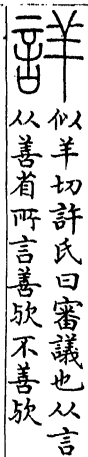 詳
似羊切許氏曰審議也从言
从善省所言善歟不善歟